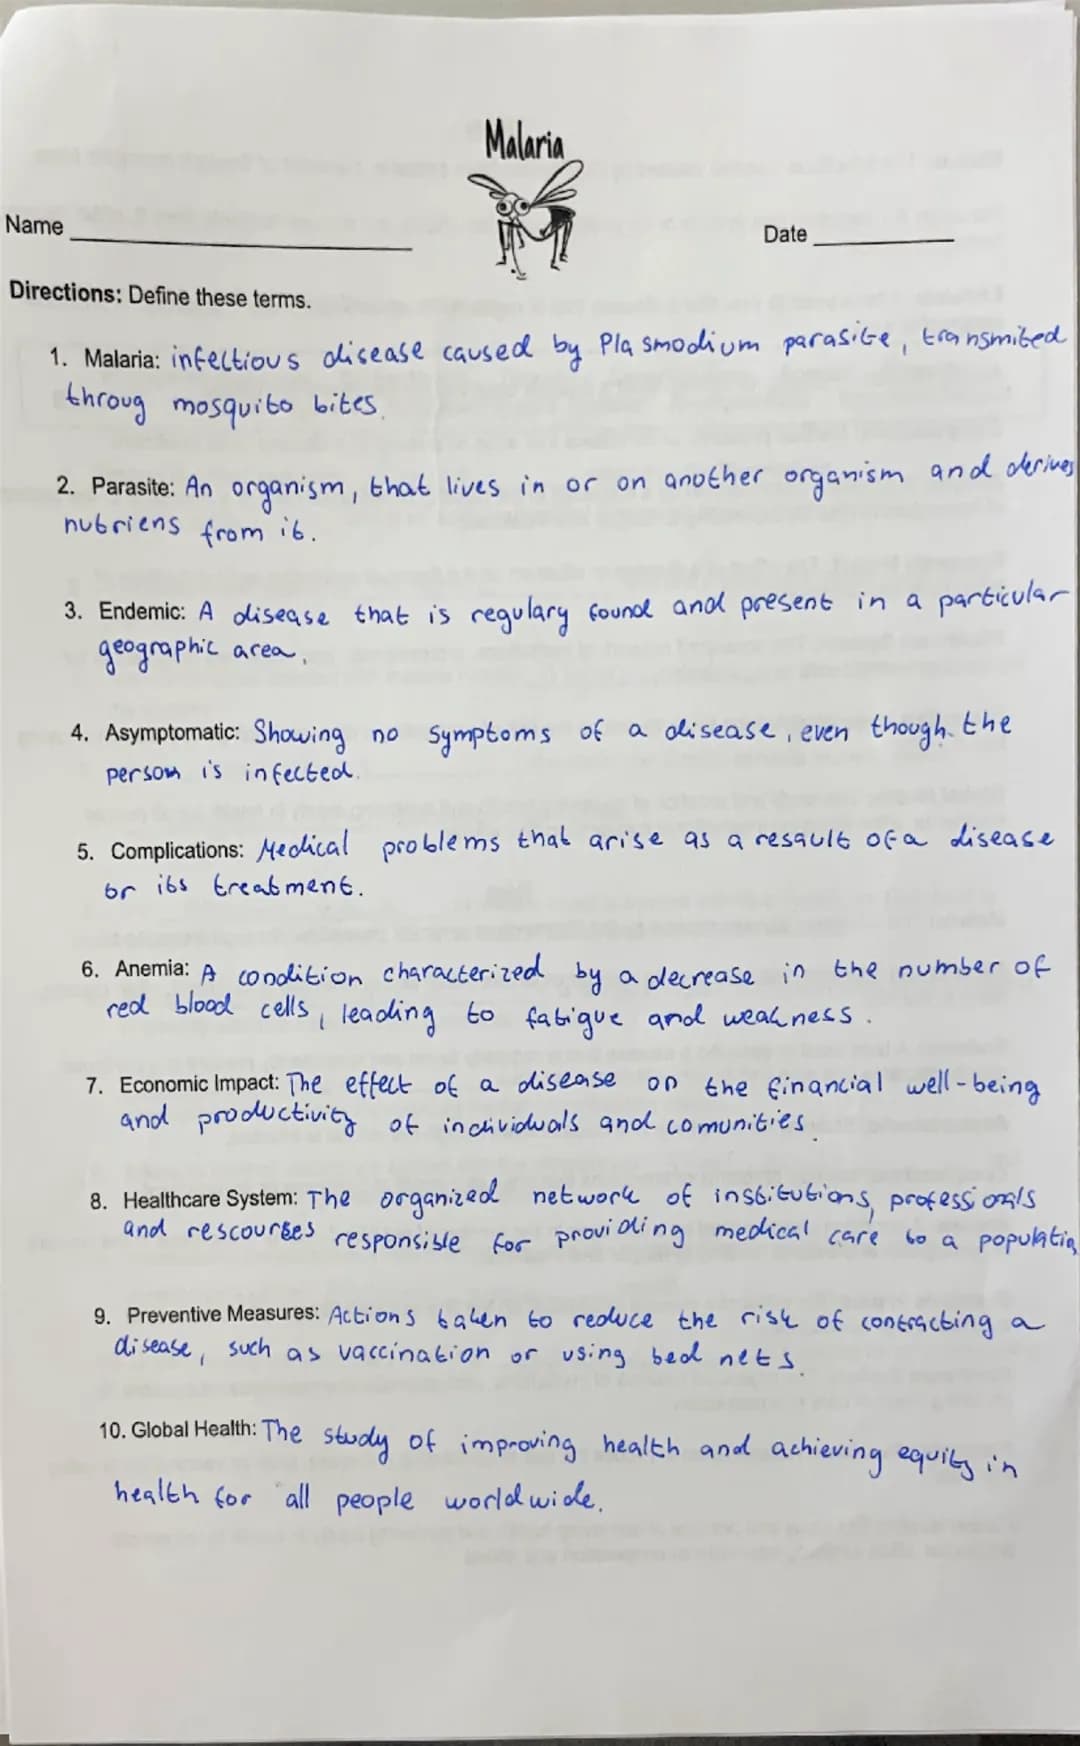 Malaria
Name
Date
Directions: Define these terms.
1. Malaria: infectious disease caused by Plasmodium parasite, transmited
throug mosquito bites.
2. Parasite: An organism, that lives in or on another organism and derives
nutriens from it.
3. Endemic: A disease that is regulary found and present in a particular
geographic area.
4. Asymptomatic: Showing no symptoms of a disease, even though the
person is infected.
5. Complications: Medical problems that arise as a resault of a disease
or its treatment.
6. Anemia: A condition characterized by a decrease in the number of
red blood cells, leading to fatigue and weakness.
7. Economic Impact: The effect of a disease on the financial well-being
and productivity of individuals and comunities.
8. Healthcare System: The organized network of institutions, professionals
and rescourses responsible for providing medical care to a
9. Preventive Measures: Actions taken to reduce the risk of contracting a
disease, such as vaccination or using bed nets.
10. Global Health: The study of improving health and achieving equity in
health for all people worldwide.